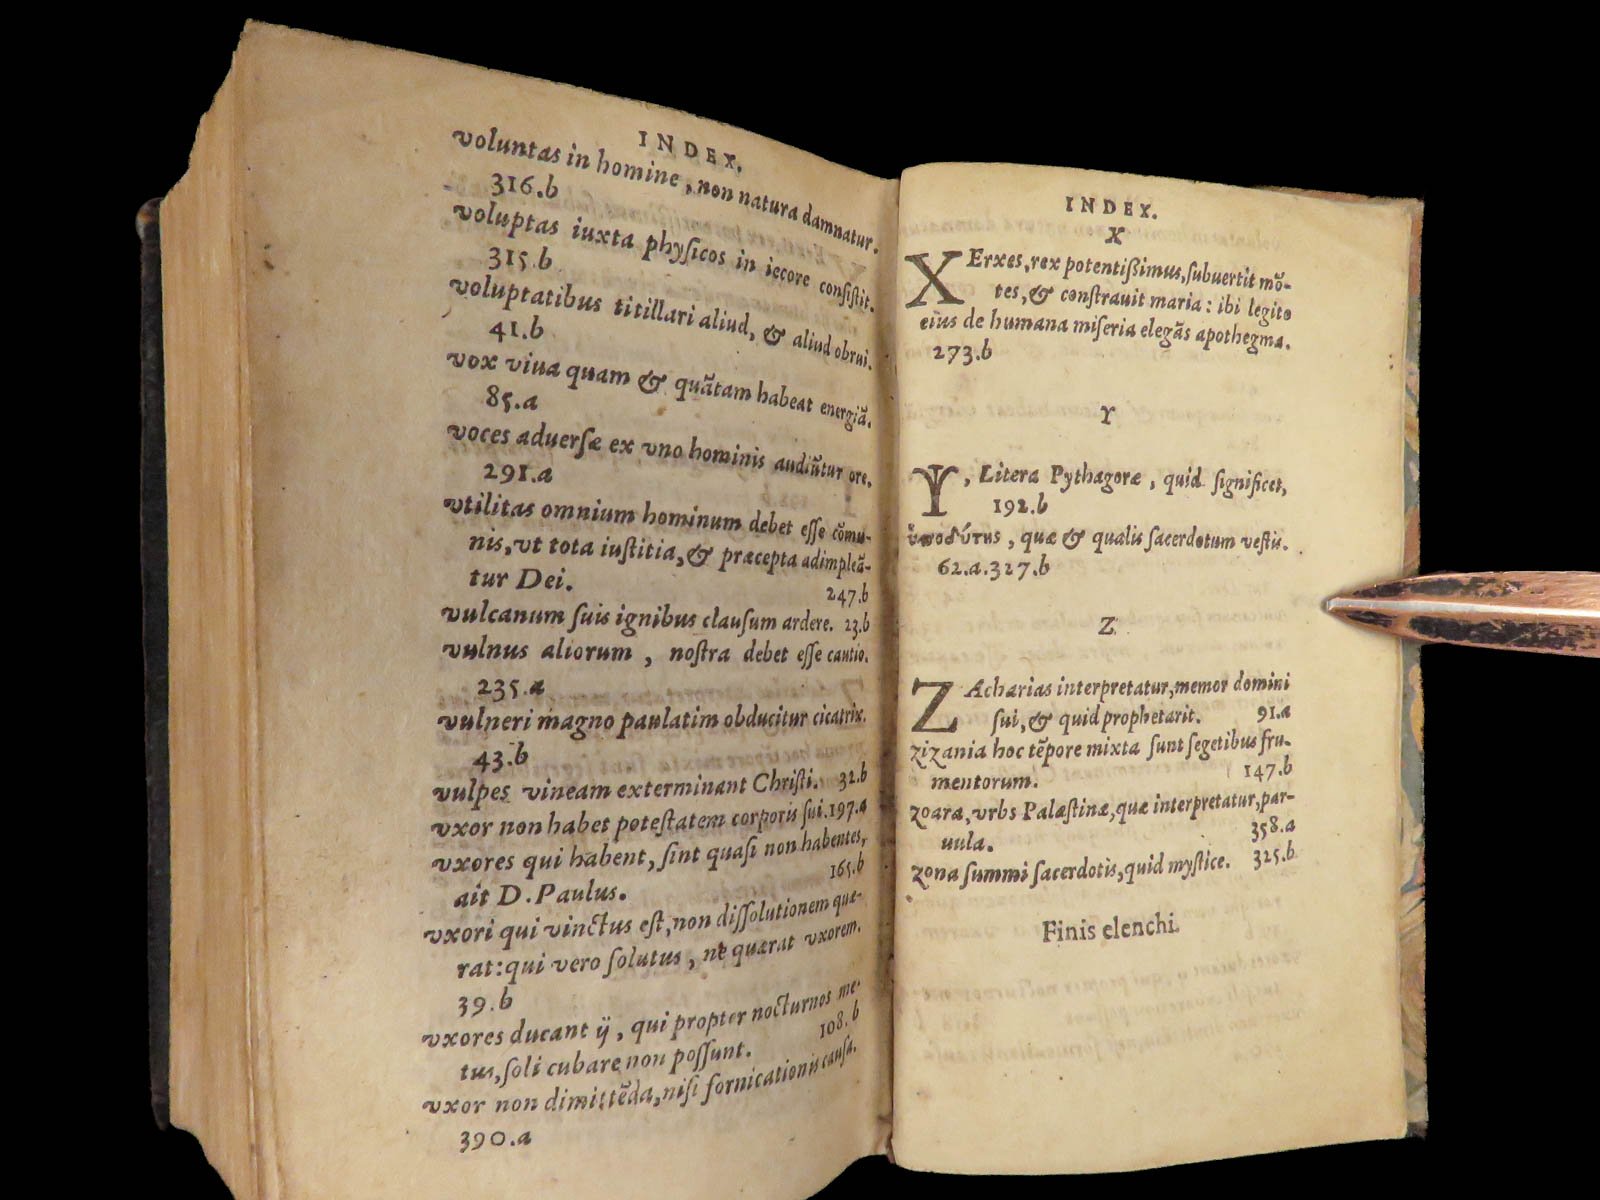 INDEX.
voluntas in homine, non natura damnatur.
316.b
voluptas iuxta phyſicos in iecore conſiſtit.
315.b
voluptatibus titillari aliud, & aliud obrui.
41.b
vox viua quam & quãtam habeat energiã.
85.a
voces aduerſæ ex vno hominis audiũtur ore.
291.a
vtilitas omnium hominum debet eſſe cõmu-
nis, vt tota iuſtitia, & præcepta adimpleã-
tur Dei.
247.b
vulcanum ſuis ignibus clauſum ardere. 23.b
vulnus aliorum, noſtra debet eſſe cautio.
235.a
vulneri magno paulatim obducitur cicatrix.
43.b
vulpes vineam exterminant Chriſti. 32.b
vxor non habet poteſtatem corporis ſui. 197.a
vxores qui habent, ſint quaſi non habentes,
ait D. Paulus.
165.b
vxori qui vinctus eſt, non diſſolutionem quæ-
rat: qui vero ſolutus, ne quærat vxorem.
39.b
vxores ducant ij, qui propter nocturnos me-
tus, ſoli cubare non poſſunt.
108.b
vxor non dimittẽda, niſi fornicationis cauſa.
390.a
INDEX.
X
XErxes, rex potentiſsimus, ſubuertit mõ-
tes, & conſtrauit maria: ibi legito
eius de humana miſeria elegãs apothegma.
273.b
Y
Y, Litera Pythagoræ, quid ſignificet,
192.b
ὑποδύτης, quæ & qualis ſacerdotum veſtis.
62.a.327.b
Z
ZAcharias interpretatur, memor domini
ſui, & quid prophetarit. 91.a
zizania hoc tẽpore mixta ſunt ſegetibus fru-
mentorum. 147.b
zoara, vrbs Palæſtinæ, quæ interpretatur, par-
uula. 358.a
zona ſummi ſacerdotis, quid myſtice. 325.b
Finis elenchi.